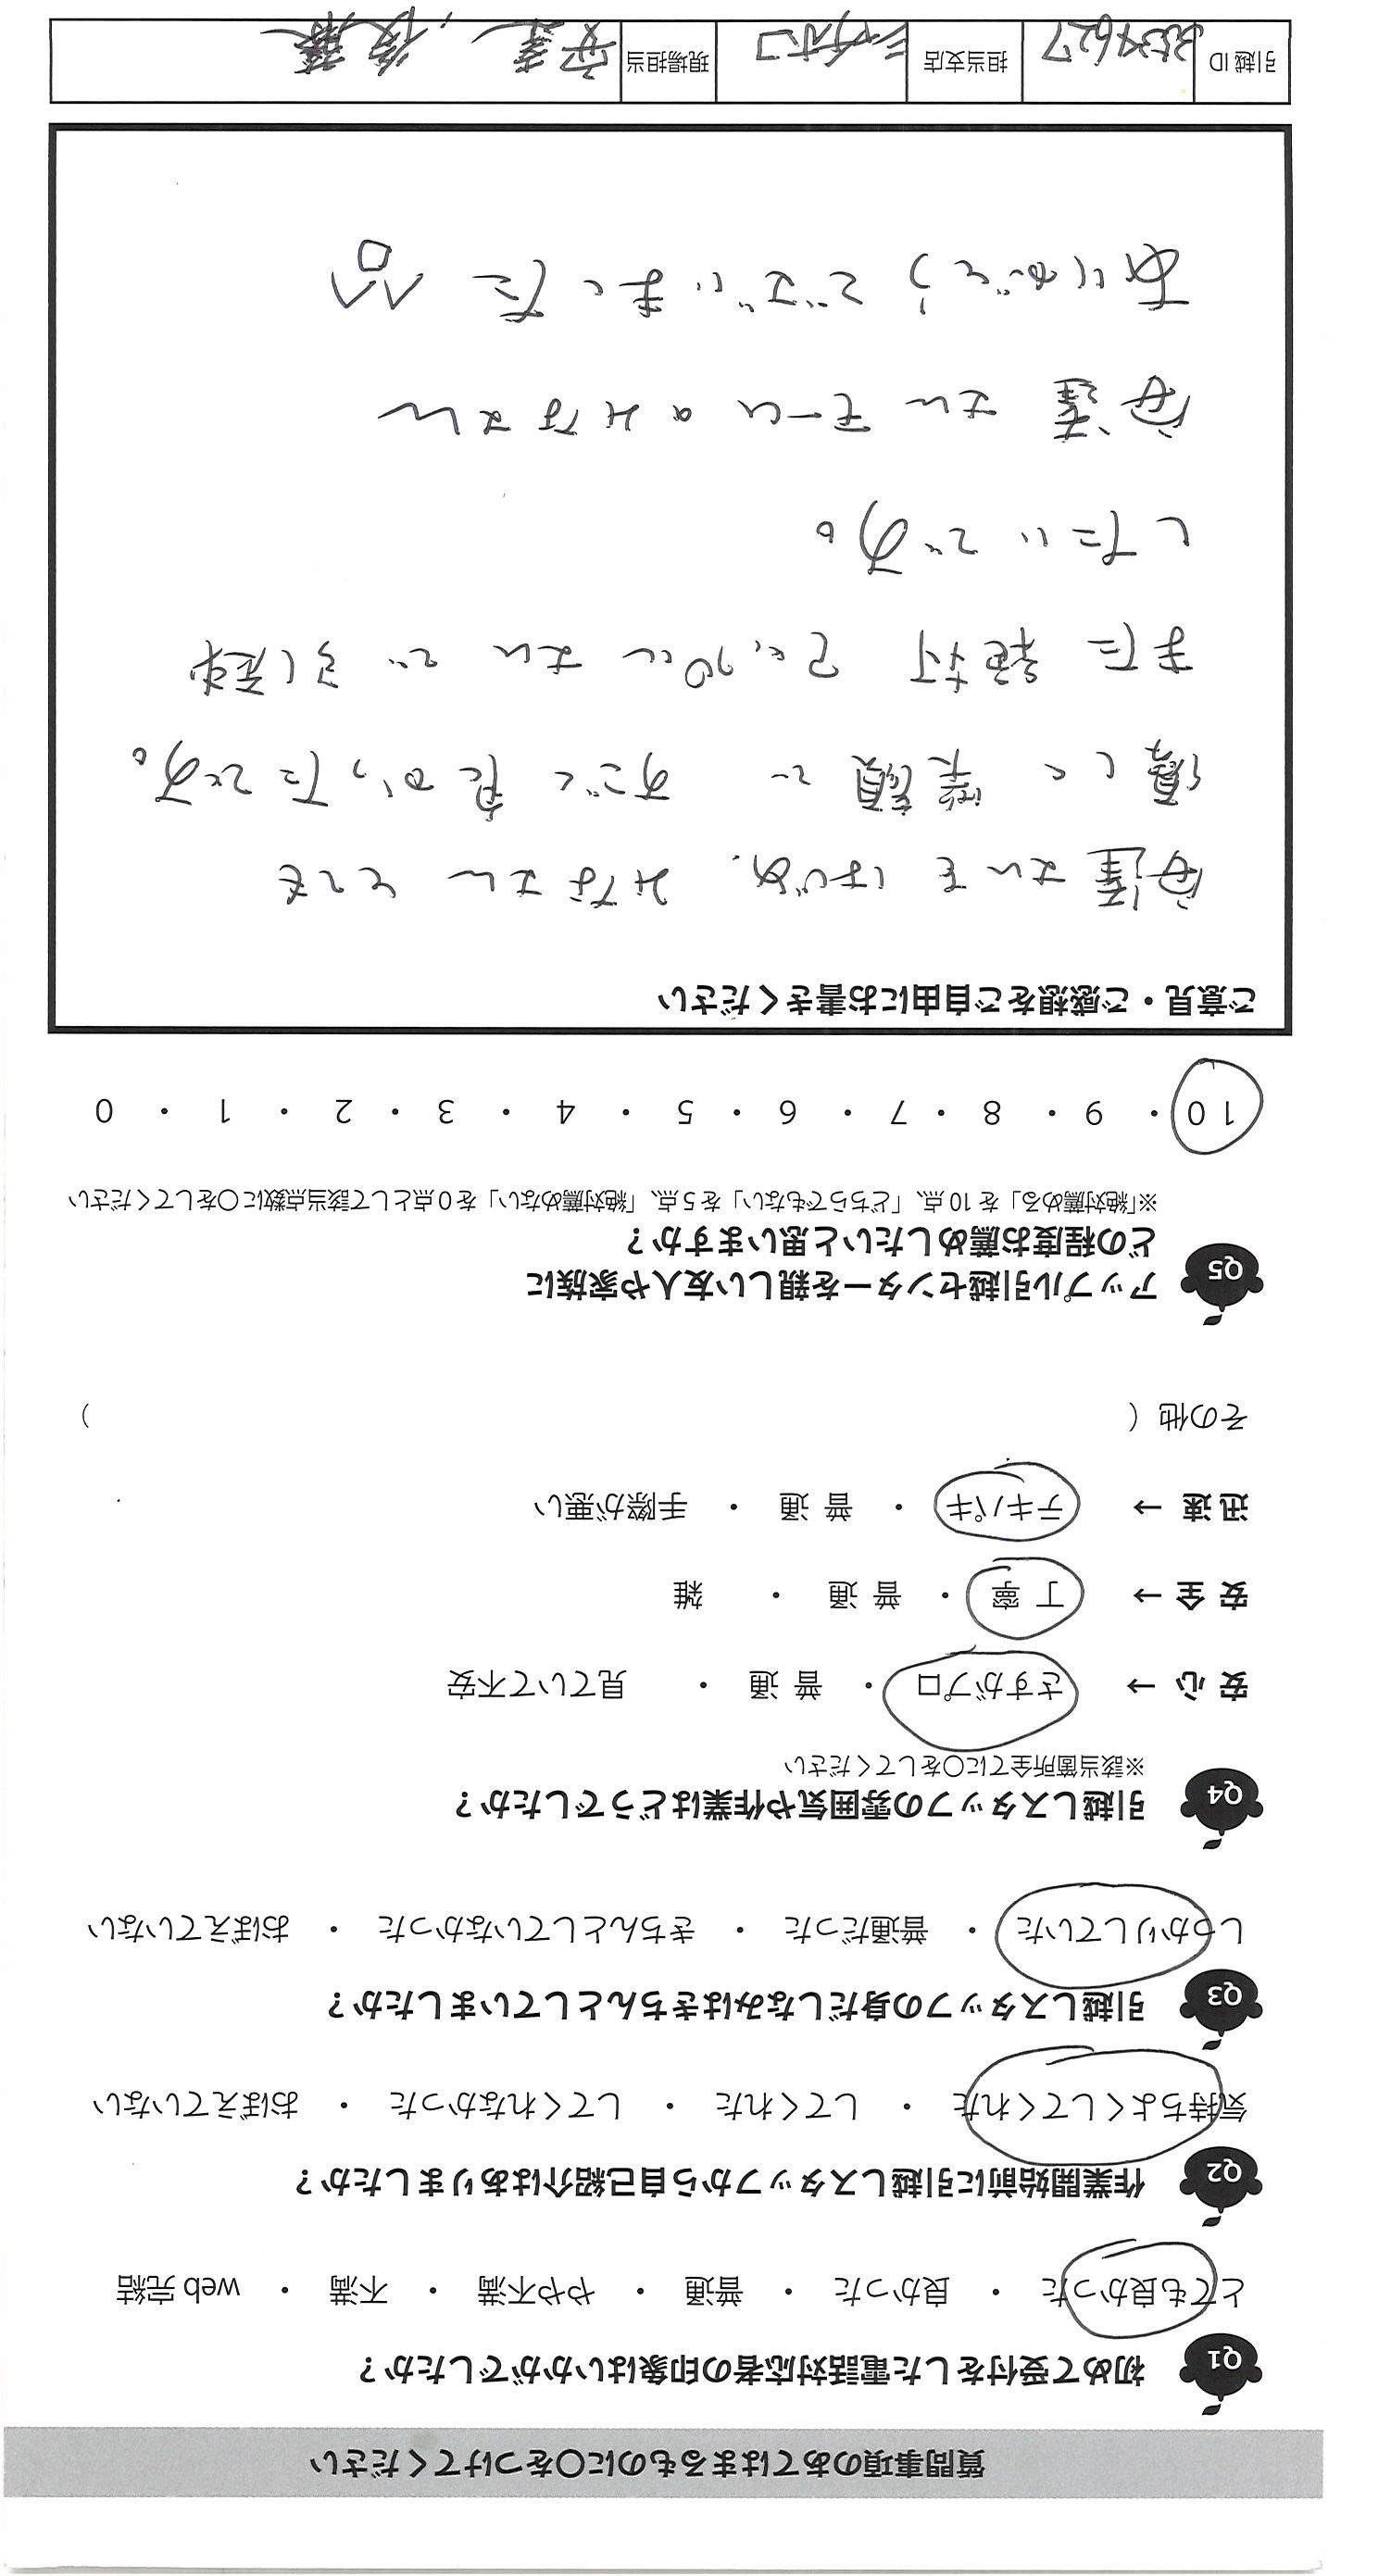 質問事項のあてはまるものに〇をつけてください
Q1 初めて受付をした電話対応者の印象はいかがでしたか？
とても良かった ・ 良かった ・ 普通 ・ やや不満 ・ 不満 ・ web 完結
Q2 作業開始前に引越しスタッフから自己紹介はありましたか？
気持ちよくしてくれた ・ してくれた ・ してくれなかった ・ おぼえていない
Q3 引越しスタッフの身だしなみはきちんとしていましたか？
しっかりしていた ・ 普通だった ・ きちんとしていなかった ・ おぼえていない
Q4 引越しスタッフの雰囲気や作業はどうでしたか？
※該当箇所全てに〇をしてください
安 心 → さすがプロ ・ 普 通 ・ 見ていて不安
安 全 → 丁 寧 ・ 普 通 ・ 雑
迅 速 → テキパキ ・ 普 通 ・ 手際が悪い
その他（ ）
Q5 アップル引越センターを親しい友人や家族に
どの程度お薦めしたいと思いますか？
※「絶対薦める」を 10 点、「どちらでもない」を 5 点、「絶対薦めない」を 0 点として該当点数に〇をしてください
10 ・ 9 ・ 8 ・ 7 ・ 6 ・ 5 ・ 4 ・ 3 ・ 2 ・ 1 ・ 0
ご意見・ご感想をご自由にお書きください
安達さんをはじめ、みなさんとても
優しく 笑顔で すごく良かったです。
また絶対 アップルさんで引越
したいです。
安達さんチームのみなさん
ありがとうございました
引越 ID 3534627 担当支店 ミサオコ 現場担当 安達、後藤